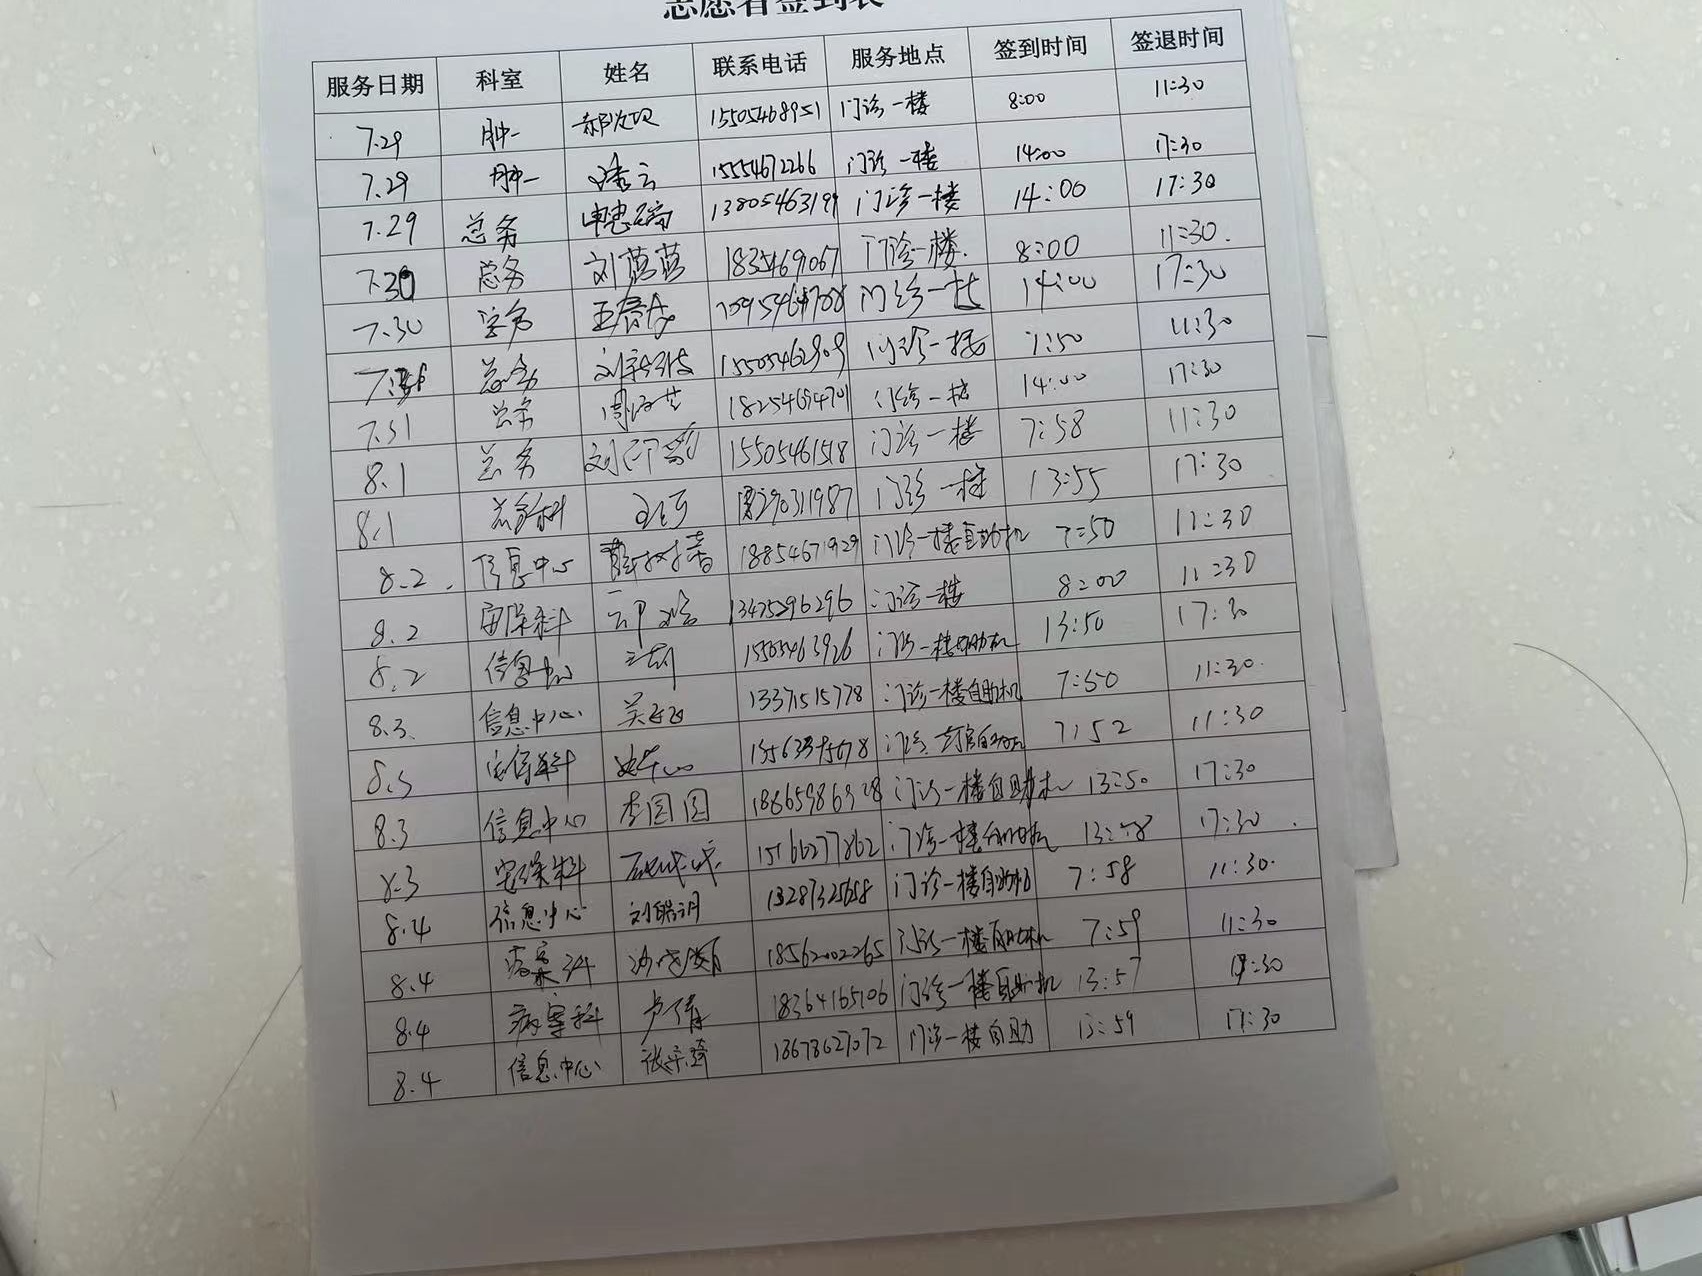 志愿者签到表
服务日期 科室 姓名 联系电话 服务地点 签到时间 签退时间
7.29 肿一 15505468951 门诊一楼 8:00 11:30
7.29 肿一 15554672266 门诊一楼 14:00 17:30
7.29 总务 13805463199 门诊一楼 14:00 17:30
7.30 总务 刘蓝蓝 18354691067 门诊一楼. 8:00 11:30.
7.30 总务 门诊一楼 14:00 17:30
总务 15505462909 门诊一楼 7:50 11:30
7.31 总务 18254694701 门诊一楼 14:00 17:30
8.1 总务 15505461518 门诊一楼 7:58 11:30
8.1 总务科 门诊一楼 13:55 17:30
8.2. 信息中心 薛树香 18854671929 门诊一楼自助机 7:50 11:30
8.2 安保科 13475296296 门诊一楼 8:00 11:30
8.2 信息中心 15505463926 门诊一楼自助机 13:50 17:30
8.3. 信息中心 13371515778 门诊一楼自助机 7:50 11:30.
8.3 安保科 门诊一楼自助机 7:52 11:30
8.3 信息中心 李圆圆 18865986928 门诊一楼自助机 13:50 17:30
8.3 安保科 15166277862 门诊一楼自助机 13:58 17:30.
8.4 信息中心 13287325658 门诊一楼自助机 7:58 11:30.
8.4 病案科 18562002265 门诊一楼自助机 7:59 11:30
8.4 病案科 卢倩 18364165106 门诊一楼自助机 13:57 17:30
8.4 信息中心 18678627072 门诊一楼自助 13:59 17:30